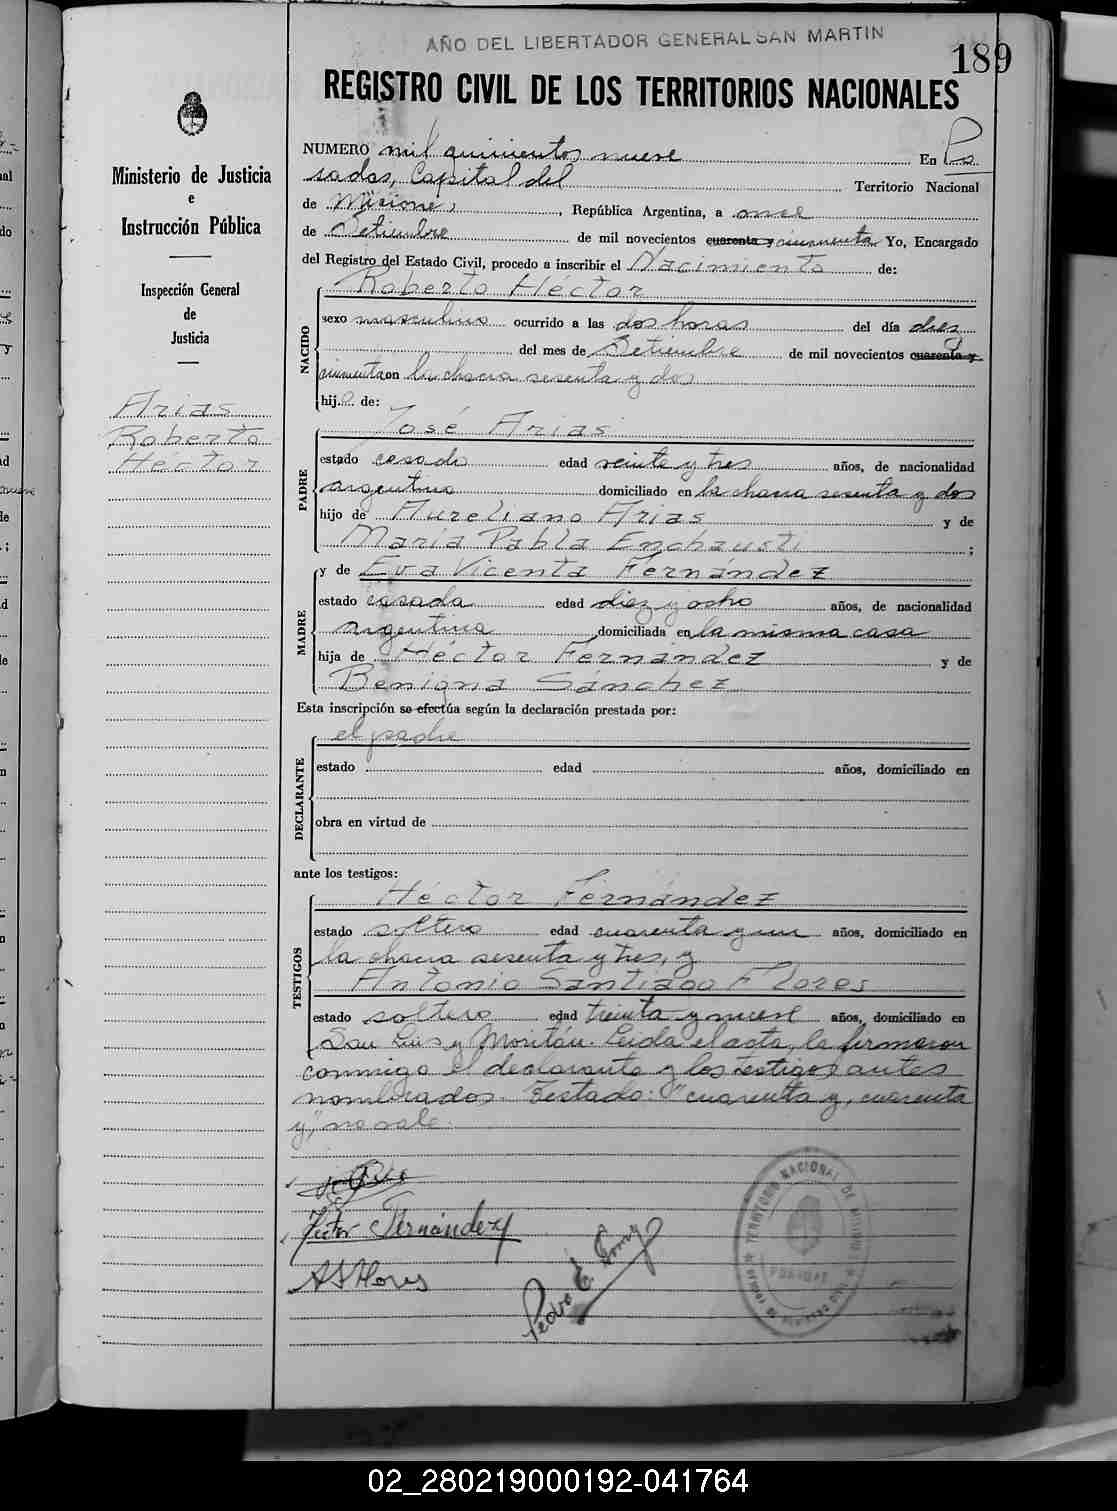 AÑO DEL LIBERTADOR GENERAL SAN MARTIN
189
REGISTRO CIVIL DE LOS TERRITORIOS NACIONALES
Ministerio de Justicia
e
Instrucción Pública
Inspección General
de
Justicia
Arias
Roberto
Héctor
NUMERO mil quinientos nueve En Po
sadas, Capital del Territorio Nacional
de Misiones, República Argentina, a once
de Setiembre de mil novecientos cuarenta y cincuenta Yo, Encargado
del Registro del Estado Civil, procedo a inscribir el Nacimiento de:
NACIDO
Roberto Héctor
sexo masculino ocurrido a las dos horas del día diez
del mes de Setiembre de mil novecientos cuarenta y
cincuenta en la chacra sesenta y dos
hijo de:
PADRE
José Arias
estado casado edad veinte y tres años, de nacionalidad
argentina domiciliado en la chacra sesenta y dos
hijo de Aureliano Arias y de
María Pabla Enchausti ;
MADRE
y de Eva Vicenta Fernández
estado casada edad diez y ocho años, de nacionalidad
argentina domiciliada en la misma casa
hija de Héctor Fernández y de
Benigna Sánchez
Esta inscripción se efectúa según la declaración prestada por:
DECLARANTE
el padre
estado edad años, domiciliado en
obra en virtud de
ante los testigos:
TESTIGOS
Héctor Fernández
estado soltero edad cuarenta y un años, domiciliado en
la chacra sesenta y tres, y
Antonio Santiago Flores
estado soltero edad treinta y nueve años, domiciliado en
San Luis y Moritán. Leida el acta, la firmaron
conmigo el declarante y los testigos antes
nombrados. Testado: "cuarenta y, cuarenta
y," no vale.
Héctor Fernández
A S Flores
Pedro E.
TERRITORIO NACIONAL DE MISIONES
POSADAS
02_280219000192-041764